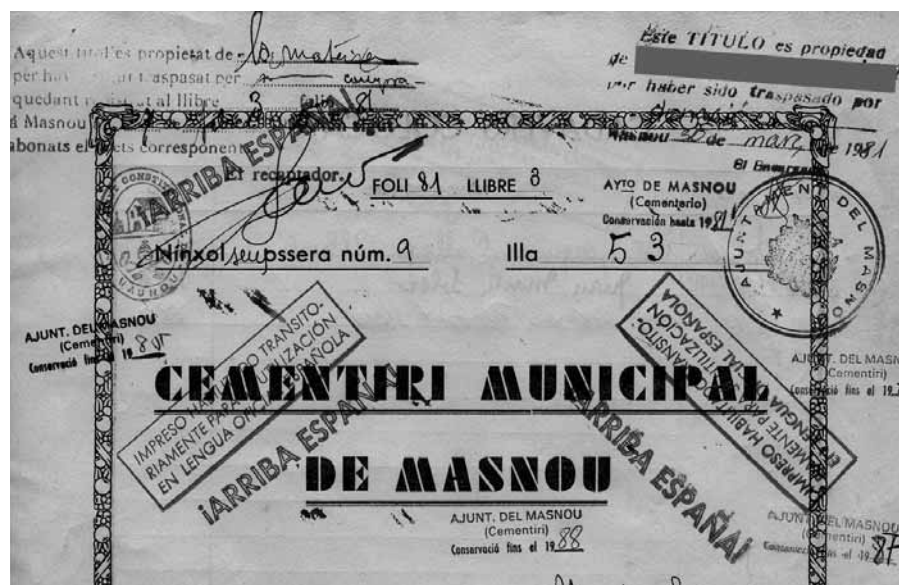 Aquest títol es propietat de la mateixa
per haver estat traspasat per compra
quedant registrat al llibre 3 foli 81
El Masnou
abonats els drets corresponents
El recaptador,
Este TITULO es propiedad
de
por haber sido traspasado por
Masnou 30 de marz de 1981
El Encargado
¡ARRIBA ESPAÑA!
FOLI 81 LLIBRE 3
AYTO DE MASNOU
(Cementerio)
Conservación hasta 1981
AJUNTAMENT DEL MASNOU
Nínxol núm. 9 Illa 53
AJUNT. DEL MASNOU
(Cementiri)
Conservació fins el 19
IMPRESO HABILITADO TRANSITO-
RIAMENTE PARA UTILIZACIÓN
EN LENGUA OFICIAL ESPAÑOLA
IMPRESO HABILITADO TRANSITO-
RIAMENTE PARA UTILIZACIÓN
EN LENGUA OFICIAL ESPAÑOLA
AJUNT. DEL MASN
(Cementiri)
Conservació fins el 19
CEMENTIRI MUNICIPAL
DE MASNOU
¡ARRIBA ESPAÑA!
¡ARRIBA ESPAÑA!
AJUNT. DEL MASNOU
(Cementiri)
Conservació fins el 1988
AJUNT. DEL MASNOU
(Cementiri)
Conservació fins el 1987